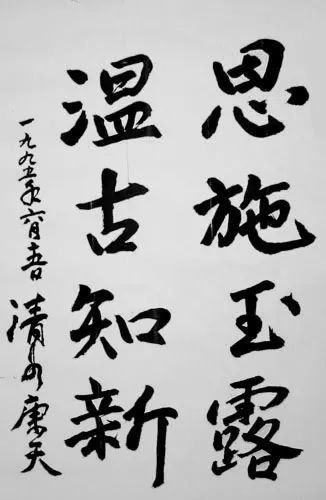 恩施玉露
温古知新
一九九五年六月 清水康夫